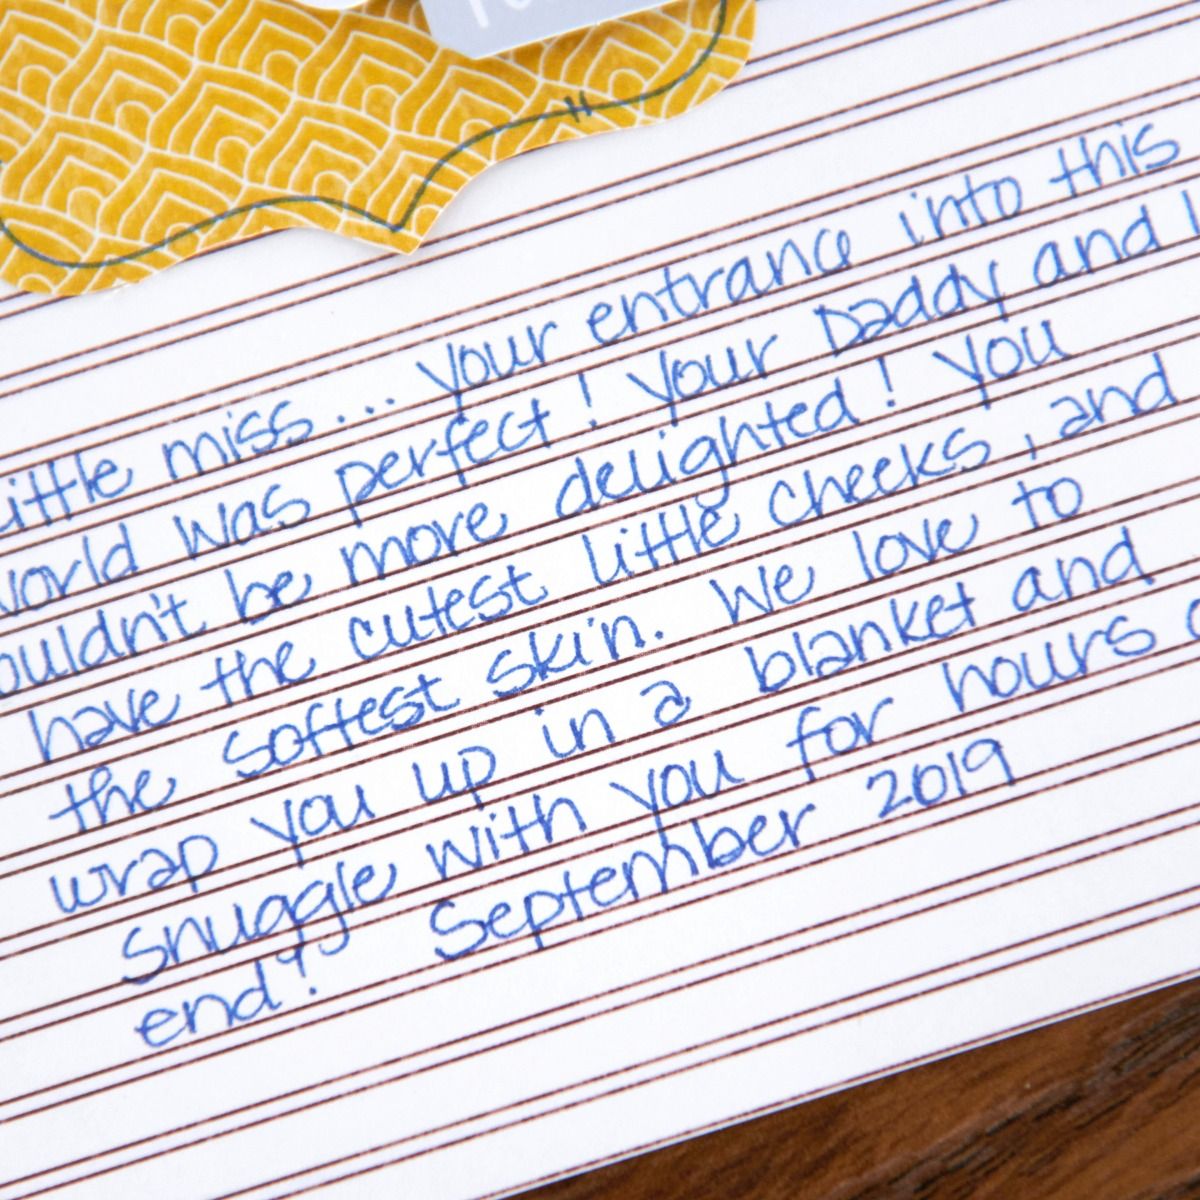 little miss... your entrance into this
world was perfect! your Daddy and I
ouldn't be more delighted! you
have the cutest little cheeks, and
the softest skin. we love to
wrap you up in a blanket and
snuggle with you for hours
end! September 2019